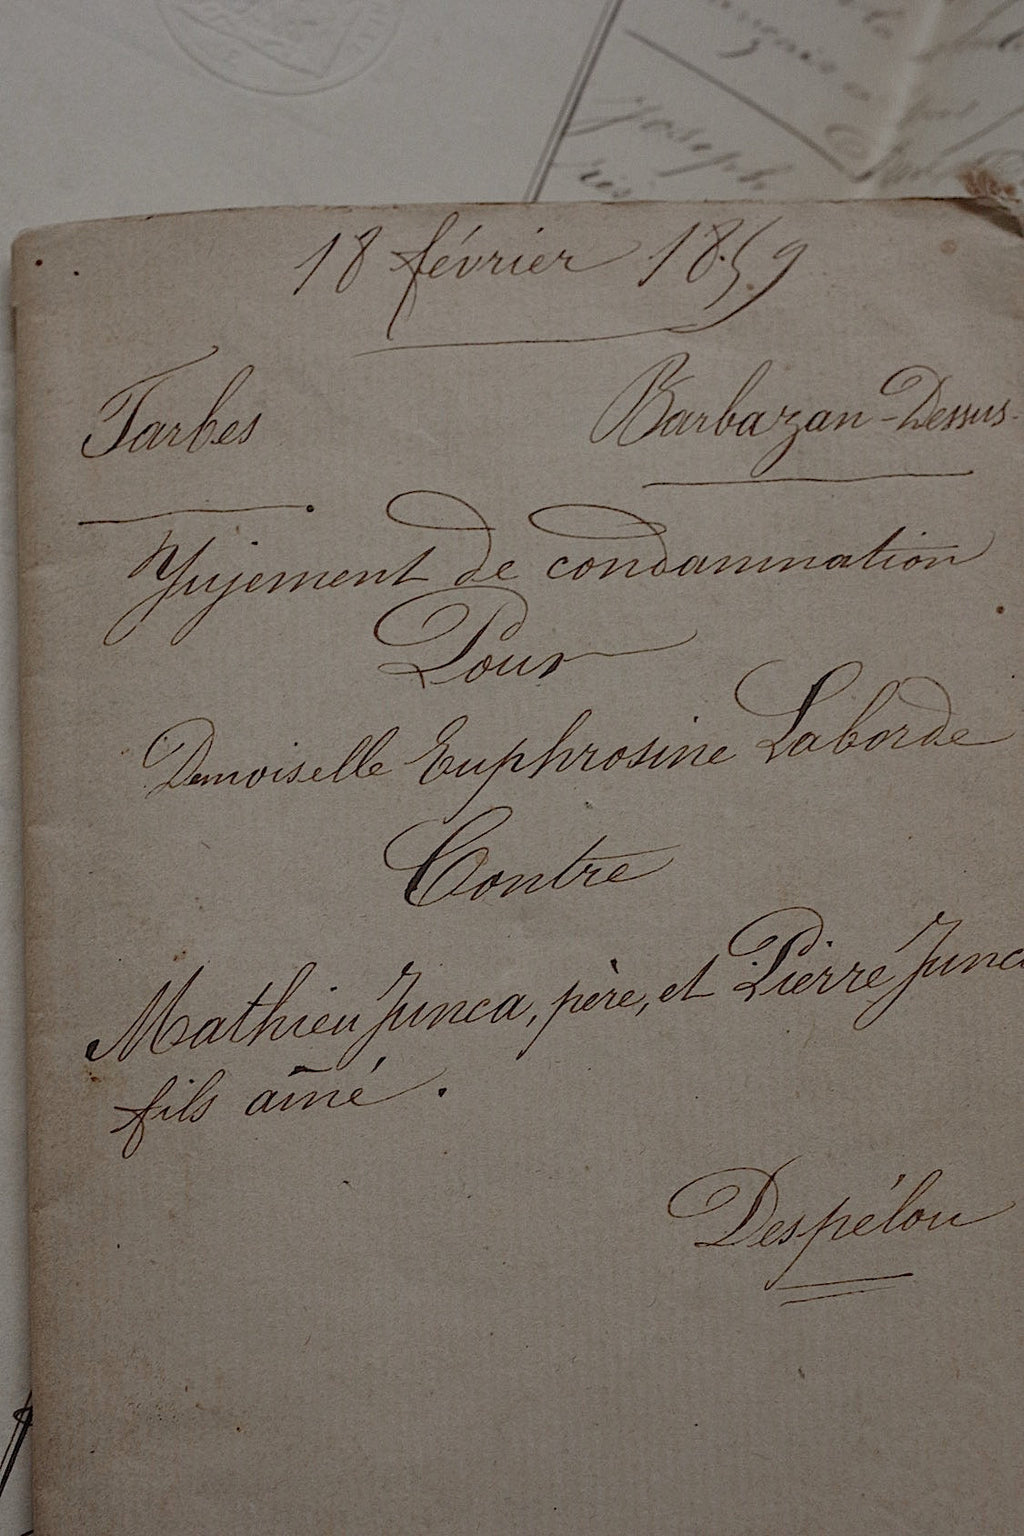 Joseph
18 février 1859
Tarbes
Barbazan-Dessus
Jujement de condamnation
Pour
Demoiselle Euphrosine Laborde
Contre
Mathieu Junca, père, et Pierre Junca
fils aîné.
Despélou